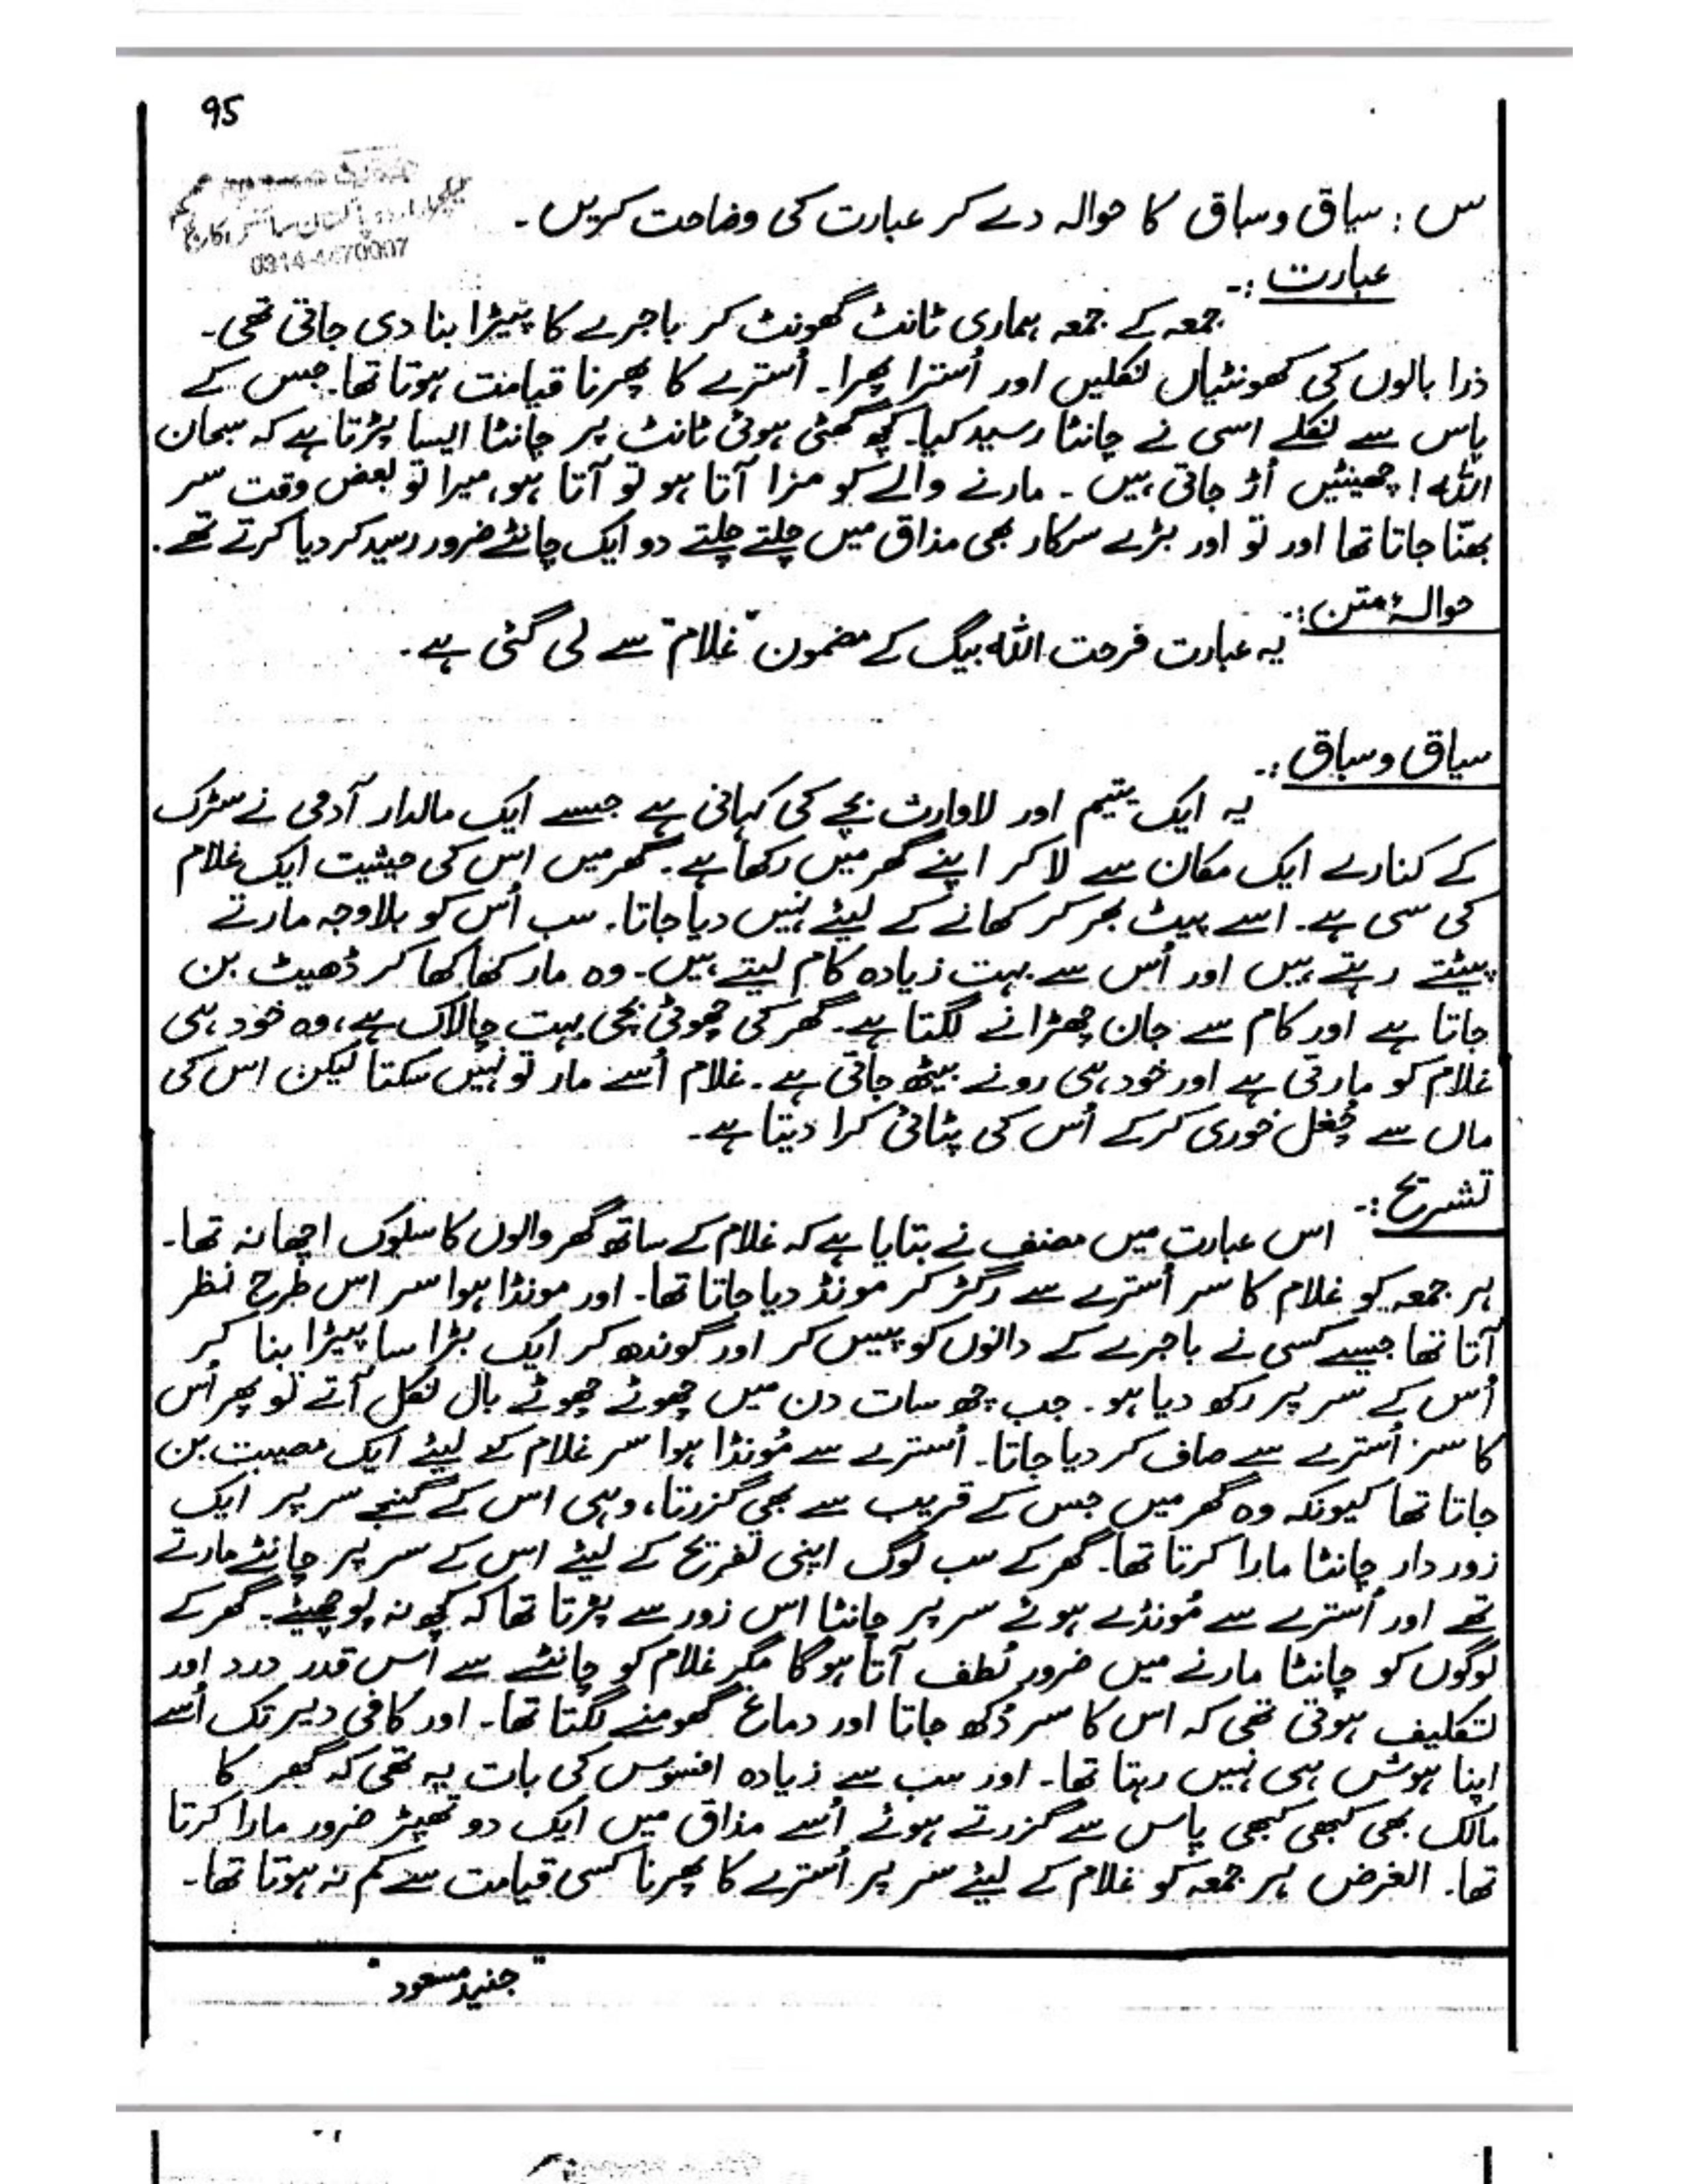 95
لیکچرار اردو پاکستان سائنس کالج
0314-4470007
س : سیاق وسباق کا حوالہ دے کر عبارت کی وضاحت کریں ۔
عبارت :۔
جمعہ کے جمعہ ہماری ٹانٹ گھونٹ کر باجرے کا پیڑا بنا دی جاتی تھی۔
ذرا بالوں کی کھونٹیاں نکلیں اور اُسترا پھرا۔ اُسترے کا پھرنا قیامت ہوتا تھا۔ جس کے
پاس سے نکلے اسی نے چانٹا رسید کیا۔ کچھ گھٹی ہوئی ٹانٹ پر چانٹا ایسا پڑتا ہے کہ سبحان
اللہ ! چھینٹیں اُڑ جاتی ہیں ۔ مارنے والے کو مزا آتا ہو تو آتا ہو، میرا تو بعض وقت سر
بھنّا جاتا تھا اور تو اور بڑے سرکار بھی مذاق میں چلتے چلتے دو ایک چانٹے ضرور رسید کر دیا کرتے تھے۔
حوالۂ متن :۔
یہ عبارت فرحت اللہ بیگ کے مضمون "غلام" سے لی گئی ہے۔
سیاق و سباق :۔
یہ ایک یتیم اور لاوارث بچے کی کہانی ہے جسے ایک مالدار آدمی نے سڑک
کے کنارے ایک مکان سے لا کر اپنے گھر میں رکھا ہے۔ گھر میں اس کی حیثیت ایک غلام
کی سی ہے۔ اسے پیٹ بھر کر کھانے کے لیئے نہیں دیا جاتا۔ سب اُس کو بلاوجہ مارتے
پیٹتے رہتے ہیں اور اُس سے بہت زیادہ کام لیتے ہیں۔ وہ مار کھا کھا کر ڈھیٹ بن
جاتا ہے اور کام سے جان چھڑانے لگتا ہے۔ گھر کی چھوٹی بچی بہت چالاک ہے، وہ خود ہی
غلام کو مارتی ہے اور خود ہی رونے بیٹھ جاتی ہے۔ غلام اُسے مار تو نہیں سکتا لیکن اس کی
ماں سے چُغل خوری کرکے اُس کی پٹائی کرا دیتا ہے۔
تشریح :۔
اس عبارت میں مصنف نے بتایا ہے کہ غلام کے ساتھ گھر والوں کا سلوک اچھا نہ تھا۔
ہر جمعہ کو غلام کا سر اُسترے سے رگڑ کر مونڈ دیا جاتا تھا۔ اور مونڈا ہوا سر اس طرح نظر
آتا تھا جیسے کسی نے باجرے کے دانوں کو پیس کر اور گوندھ کر ایک بڑا سا پیڑا بنا کر
اُس کے سر پر رکھ دیا ہو۔ جب چھ سات دن میں چھوٹے چھوٹے بال نکل آتے تو پھر اُس
کا سر اُسترے سے صاف کر دیا جاتا۔ اُسترے سے مُونڈا ہوا سر غلام کے لیئے ایک مصیبت بن
جاتا تھا کیونکہ وہ گھر میں جس کے قریب سے بھی گزرتا، وہی اس کے گنجے سر پر ایک
زور دار چانٹا مارا کرتا تھا۔ گھر کے سب لوگ اپنی تفریح کے لیئے اس کے سر پر چانٹے مارتے
تھے اور اُسترے سے مُونڈے ہوئے سر پر چانٹا اس زور سے پڑتا تھا کہ کچھ نہ پوچھیئے۔ گھر کے
لوگوں کو چانٹا مارنے میں ضرور لُطف آتا ہوگا مگر غلام کو چانٹے سے اُس قدر درد اور
تکلیف ہوتی تھی کہ اس کا سر دُکھ جاتا اور دماغ گھومنے لگتا تھا۔ اور کافی دیر تک اُسے
اپنا ہوش ہی نہیں رہتا تھا۔ اور سب سے زیادہ افسوس کی بات یہ تھی کہ گھر کا
مالک بھی کبھی کبھی پاس سے گزرتے ہوئے اُسے مذاق میں ایک دو تھپڑ ضرور مارا کرتا
تھا۔ الغرض ہر جمعہ کو غلام کے لیئے سر پر اُسترے کا پھرنا کسی قیامت سے کم نہ ہوتا تھا۔
"جنید مسعود"